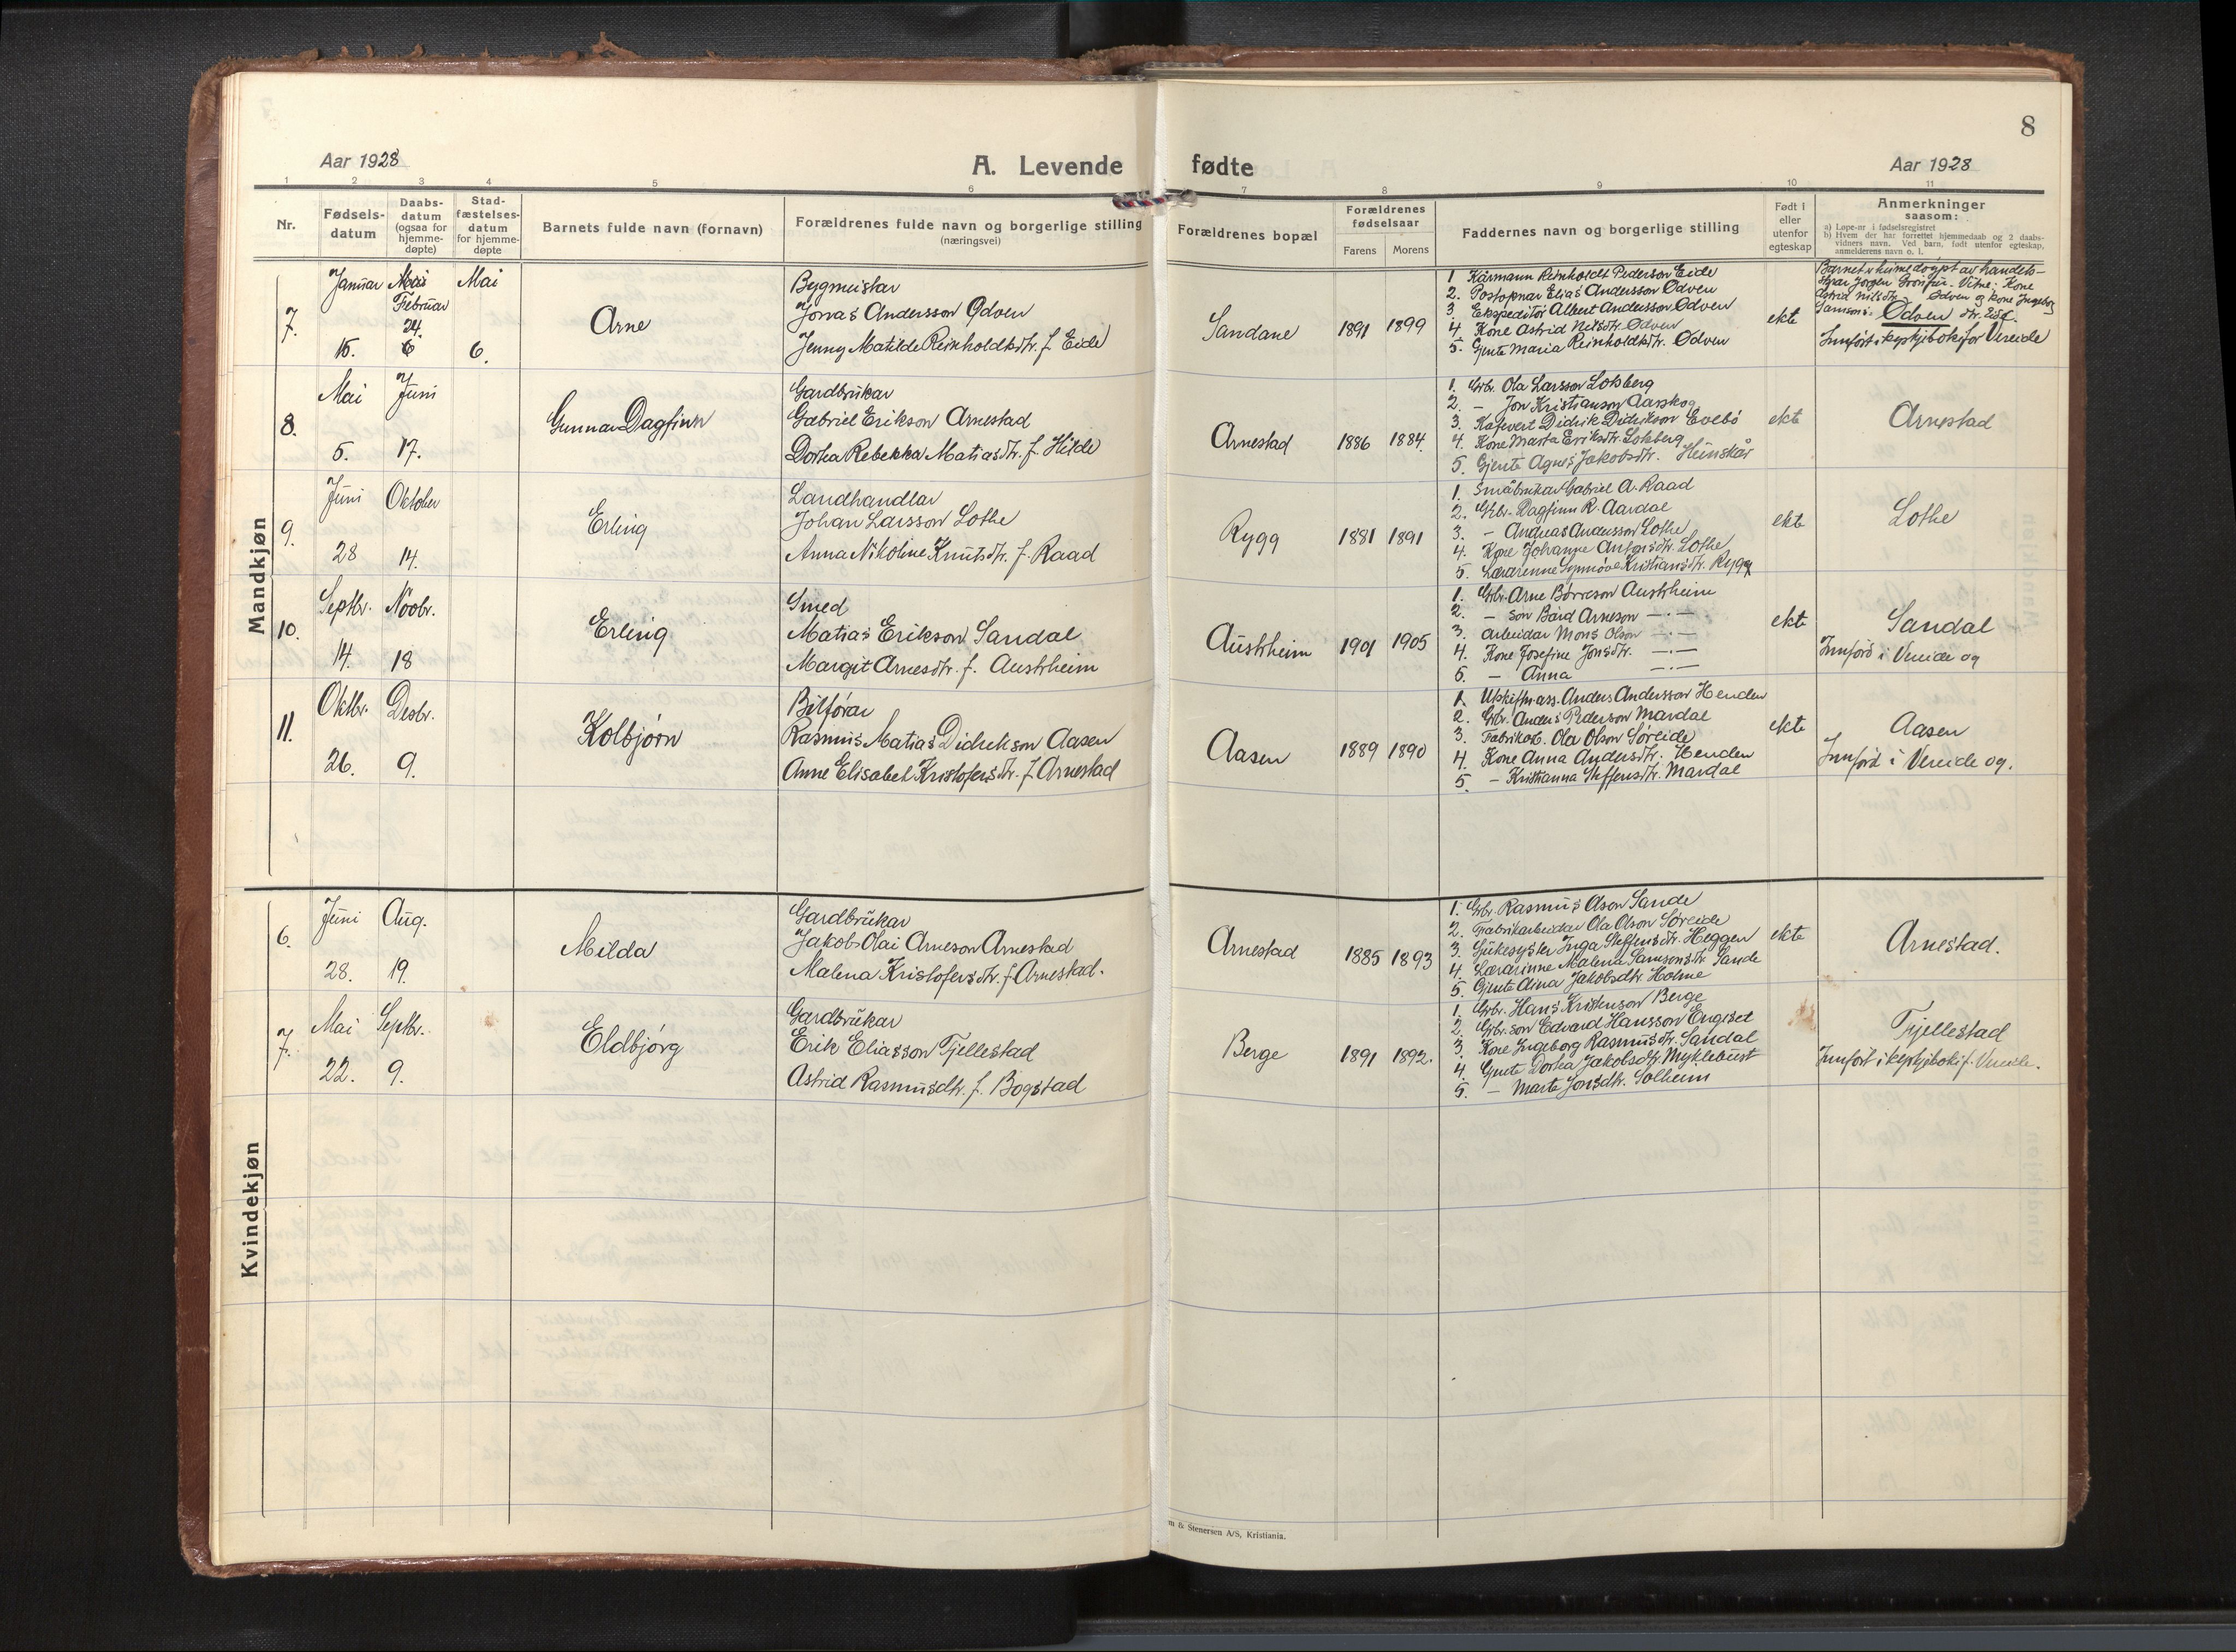 8
Aar 1928
A. Levende fødte
Aar 1928
1 2 3 4 5 6 7 8 9 10 11
Nr.
Fødsels-
datum
Daabs-
datum
(ogsaa for
hjemme-
døpte)
Stad-
fæstelses-
datum
for hjemme-
døpte
Barnets fulde navn (fornavn)
Forældrenes fulde navn og borgerlige stilling
(næringsvei)
Forældrenes bopæl
Forældrenes
fødselsaar
Farens Morens
Faddernes navn og borgerlige stilling
Født i
eller
utenfor
egteskap
Anmerkninger
saasom:
a) Løpe-nr i fødselsregistret
b) Hvem der har forrettet hjemmedaab og 2 daabs-
vidners navn. Ved barn, født utenfor egteskap,
anmelderens navn o. l.
Mandkjøn
7.
Januar
15.
Mai
Februar
24.
6
Mai
6.
Arne
Bygmeistar
Jonas Andersson Ödven
Jenny Matilde Reinholdtsdtr. f. Eide
Sandane
1891 1899
1 Kårmann Reinholdt Pederson Eide
2. Postopnar Elias Andersson Ödven
3. Ekspeditör Albert Andersson Ödven
4 Kone Astrid Nilsdtr. Ödven
5. Gjente Maria Reinholdtsdtr. Ödven
ekte
Barnet heimedöypt av handels-
Jörgen Vitne: Kone
Astrid Nilsdtr. Ödven og kone Ingeborg
Ödven
Innfört i kyrkjeboki for Vereide
8.
Mai
5.
Juni
17.
Gunnar Dagfinn
Gardbrukar
Gabriel Erikson Arnestad
Dortea Rebekka Matiasdtr. f. Hilde
Arnestad
1886 1884.
1. Gbr. Ola Larsson Lotsberg
2. – Jon Kristianson Aasskog
3. Kafevert Didrik Didrikson Evebö
4. Kone Marta Eriksdtr. Lotsberg
5. Gjente Agnes Jakobsdtr. Heimskår
ekte
Arnestad
9.
Juni
28
Oktober
14.
Erling
Landhandlar
Johan Larsson Lothe
Anna Nikoline Knutsdtr. f. Raad
Rygg
1881 1891
1. Småbrukar Gabriel A. Raad
2. Gbr. Dagfinn R. Aardal
3. – Andreas Andersson Lothe
4. Kone Johanne Antonsdtr. Lothe
5. Lærarinne Synnöve Kristiansdtr. Rygg
ekte
Lothe
10.
Septbr.
14.
Novbr.
18
Erling
Smed
Matias Erikson Sandal
Margit Arnesdtr. f. Austrheim
Austrheim
1901 1905
1. Gbr. Arne Börreson Austrheim
2. – son Bård Arneson —·—
3. Arbeidar Mons Olson —·—
4. Kone Josefine Jonsdtr. —·—
5. – Anna —·—
ekte
Sandal
Innförd i Vereide og
11.
Oktbr.
26.
Desbr.
9.
Kolbjörn
Bilförar
Rasmus Matias Didrikson Aasen
Anne Elisabet Kristofersdtr. f. Arnestad
Aasen
1889 1890
1. Utskiftn.ass. Anders Andersson Henden
2. Gbr. Anders Pederson Mardal
3. Fabrikarb. Ola Olson Söreide
4. Kone Anna Andersdtr. Henden
5. – Kristianna Steffensdtr. Mardal
ekte
Aasen
Innförd i Vereide og.
Kvindekjøn
6.
Juni
28.
Aug.
19.
Milda
Gardbrukar
Jakob Olai Arneson Arnestad
Malena Kristofersdtr. f. Arnestad.
Arnestad
1885 1893
1. Gbr. Rasmus Olson Sande
2. Fabrikarbeidar Ola Olson Söreide
3. Sjukesyster Inga Steffensdtr. Heggen
4. Lærarinne Malena Samsonsdtr Sande
5. Gjente Alina Jakobsdtr Holme
ekte
Arnestad.
7.
Mai
22.
Septbr.
9.
Eldbjörg
Gardbrukar
Erik Eliasson Fjellestad
Astrid Rasmusdtr. f. Bogstad
Berge
1891 1892.
1. Gbr. Hans Kristenson Berge
2. Gbr. son Edvard Hansson Engset
3. Kone Ingeborg Rasmusdtr. Sandal
4. Gjente Dortea Jakobsdtr. Myklebust
5. – Marta Jonsdtr. Solheim
Fjellestad
Innfört i kyrkjeboki f. Vereide.
m & Stenersen A/S, Kristiania.